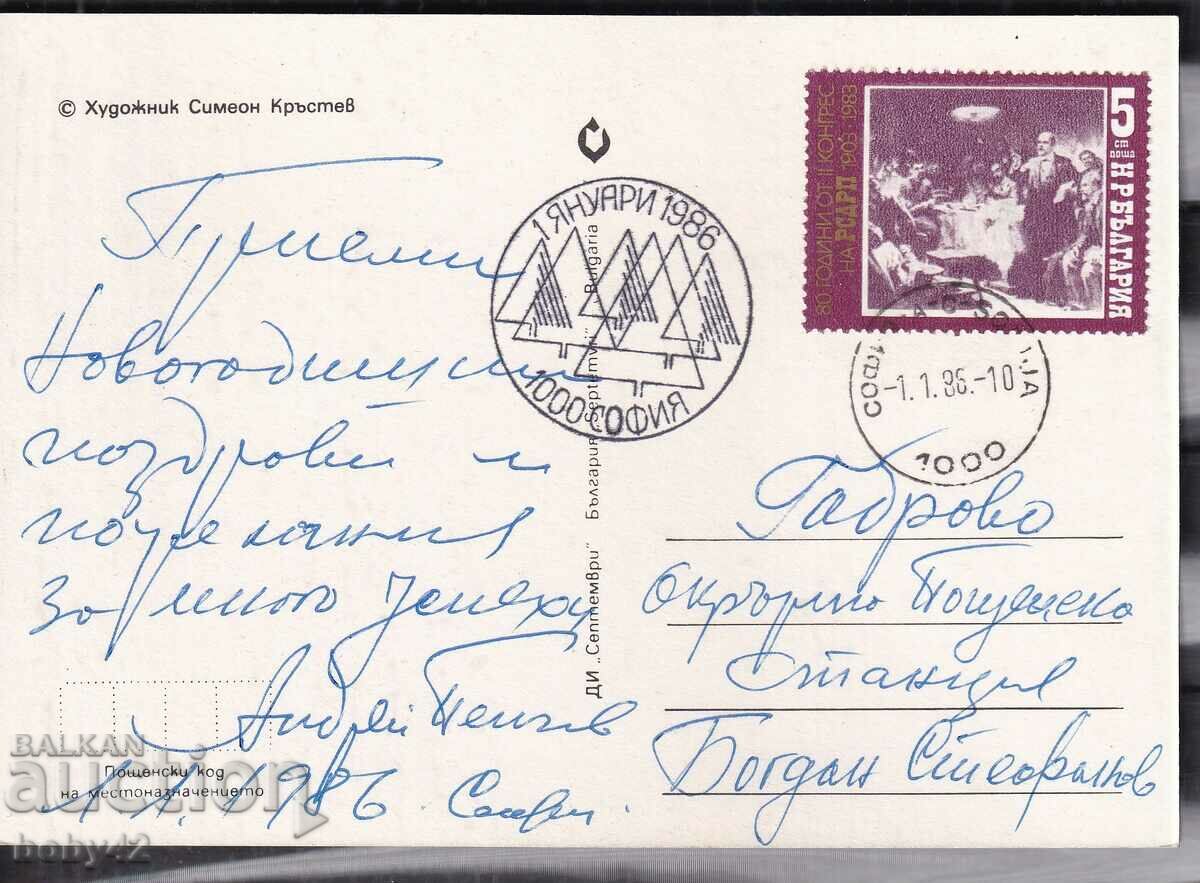 © Художник Симеон Кръстев
Приеми
Новогодишни
поздрави и
пожелания
за много успехи
Андрей Пенчев
1.1.1986. София
Пощенски код
на местоназначението
1 ЯНУАРИ 1986
1000 СОФИЯ
ДИ „Септември" България „Septemvri" Bulgaria
80 ГОДИНИ ОТ II КОНГРЕС
НА РСДРП 1903·1983
5 СТ
ПОЩА
НР БЪЛГАРИЯ
-1.1.86.-10
1000
Габрово
Окръжна Пощенска
Станция
Богдан Стефанов
BALKAN
auction
boby42